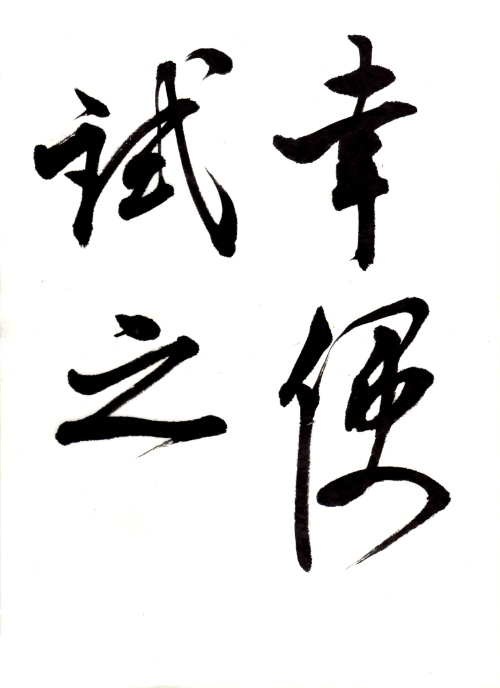 幸便
試之